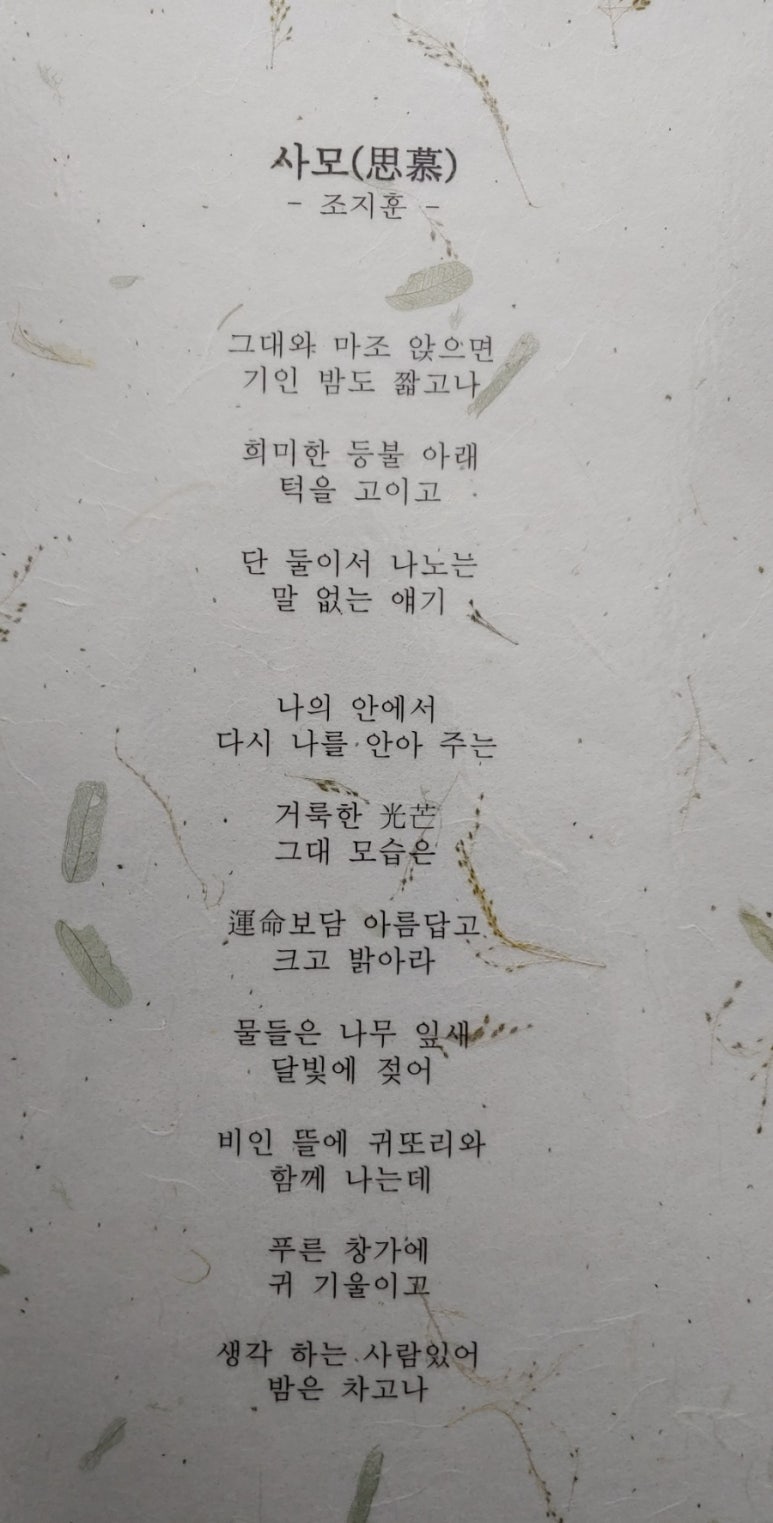 사모(思慕)
- 조지훈 -
그대와 마조 앉으면
기인 밤도 짧고나
희미한 등불 아래
턱을 고이고
단 둘이서 나노는
말 없는 얘기
나의 안에서
다시 나를 안아 주는
거룩한 光芒
그대 모습은
運命보담 아름답고
크고 밝아라
물들은 나무 잎새
달빛에 젖어
비인 뜰에 귀또리와
함께 나는데
푸른 창가에
귀 기울이고
생각 하는 사람있어
밤은 차고나